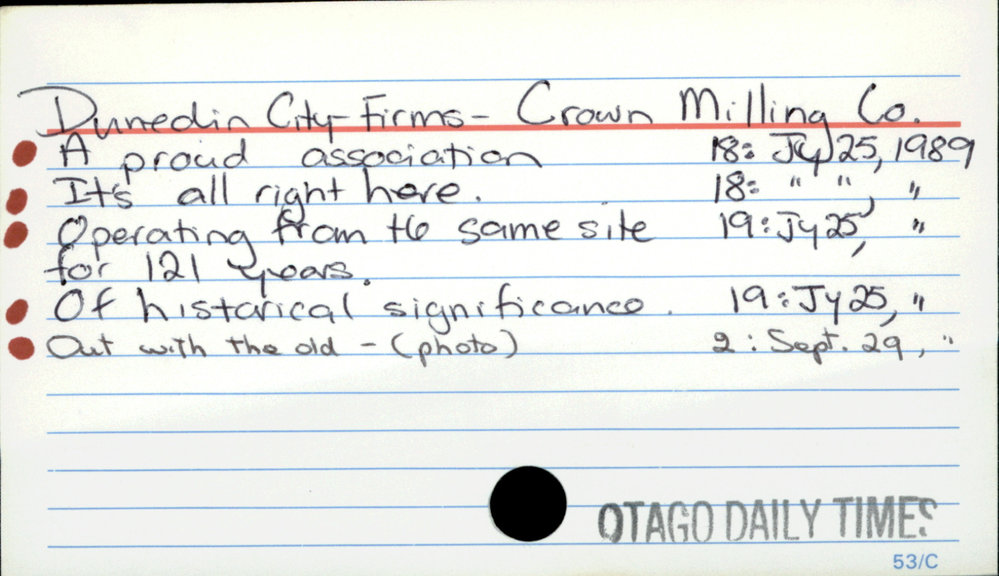 Dunedin City Firms - Crown Milling Co.
A proud association 18: Jy 25, 1989
It's all right here. 18: " ", "
Operating from the same site 19: Jy 25, "
for 121 years.
Of historical significance. 19: Jy 25, "
Out with the old - (photo) 2: Sept. 29, "
OTAGO DAILY TIMES
53/C